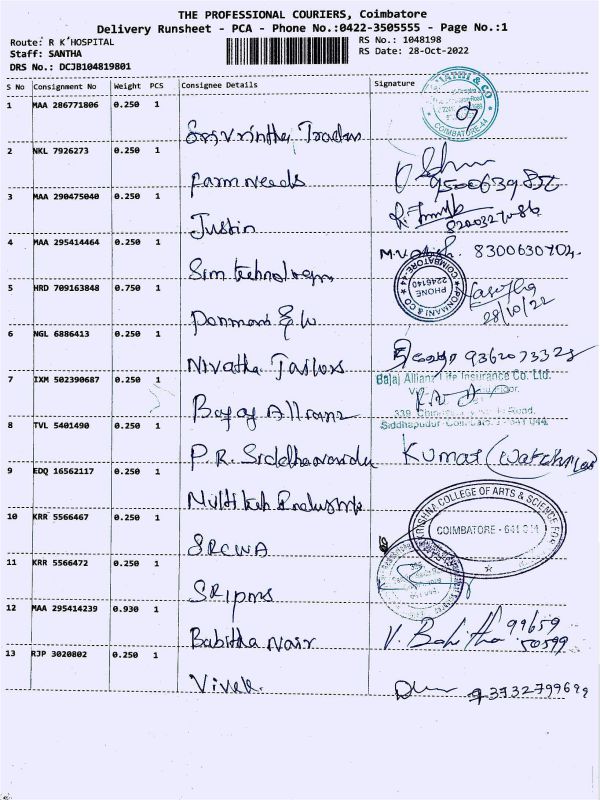 THE PROFESSIONAL COURIERS, Coimbatore
Delivery Runsheet - PCA - Phone No.:0422-3505555 - Page No.:1
Route: R K HOSPITAL
RS No.: 1048198
Staff: SANTHA
RS Date: 28-Oct-2022
DRS No.: DCJB104819801
S No Consignment No Weight PCS Consignee Details Signature
1 MAA 286771806 0.250 1
& CO
COIMBATORE-44
Traders
2 NKL 7926273 0.250 1
Farm needs
3 MAA 290475040 0.250 1
Justin
4 MAA 295414464 0.250 1
8300630702
Sim technologies
5 HRD 709163848 0.750 1
PONMANI & CO
PHONE
2246140
COIMBATORE 44
28/10/22
Ponmani & Co
6 NGL 6886413 0.250 1
Nivatha Tailors
9362073328
7 IXM 502390687 0.250 1
Bajaj Allianz Life Insurance Co. Ltd.
Road.
Siddhapudur
Bajaj Allianz
8 TVL 5401490 0.250 1
P.R. Siddha
Kumar (Watchman)
9 EDQ 16562117 0.250 1
Multitech Industries
KRISHNA COLLEGE OF ARTS & SCIENCE FOR
COIMBATORE
10 KRR 5566467 0.250 1
SRCWA
11 KRR 5566472 0.250 1
SRipms
12 MAA 295414239 0.930 1
Babitha Nair
V. Babitha 99659
50599
13 RJP 3020802 0.250 1
Vivek.